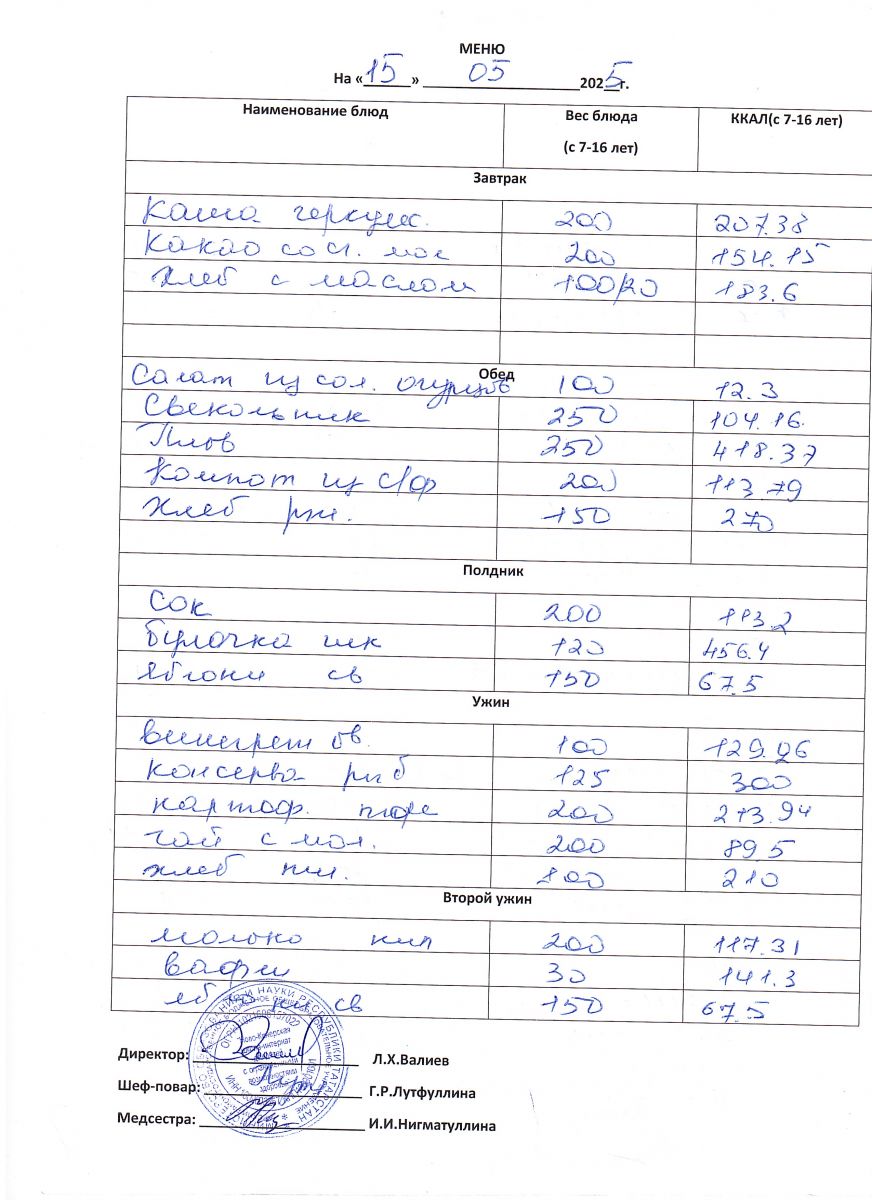 МЕНЮ
На «15» 05 2025 г.
Наименование блюд Вес блюда (с 7-16 лет) ККАЛ(с 7-16 лет)
Завтрак
Каша геркулес. 200 207.38
Какао со сг. мол 200 154.15
Хлеб с маслом 100/20 183.6
Обед
Салат из сол. огурцов 100 12.3
Свекольник 250 104.16.
Плов 250 418.37
Компот из с/ф 200 113.79
Хлеб рж. 150 270
Полдник
Сок 200 113.2
Булочка шк 120 456.4
Яблоки св 150 67.5
Ужин
Винегрет ов. 100 129.26
Консерва рыб 125 300
картоф. пюре 200 273.94
чай с мол. 200 89.5
хлеб пш. 100 210
Второй ужин
молоко кип 200 117.31
вафли 30 141.3
яблоки св 150 67.5
Директор: Л.Х.Валиев
Шеф-повар: Г.Р.Лутфуллина
Медсестра: И.И.Нигматуллина